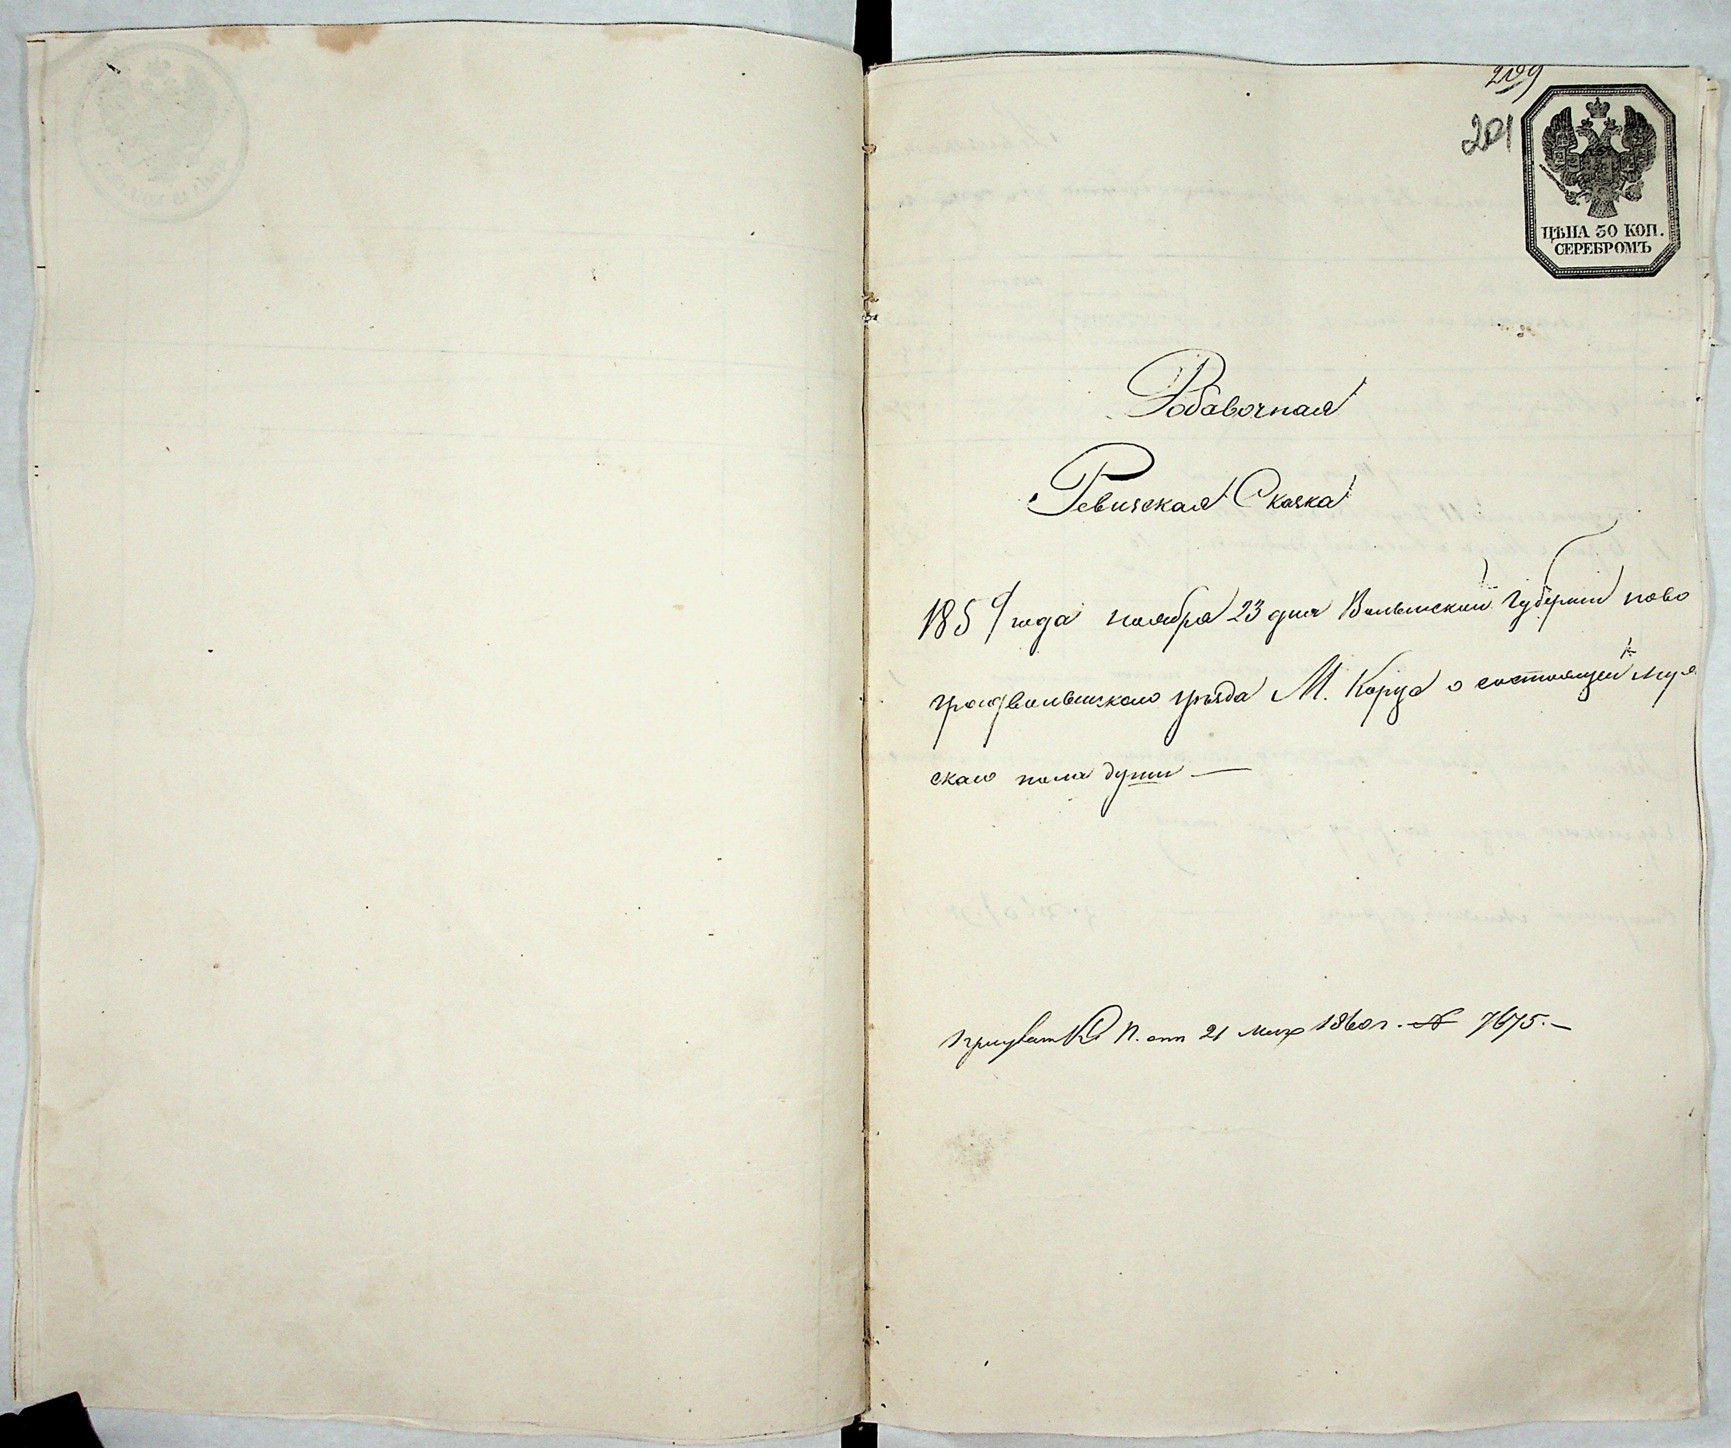 209
201
ЦѢНА 30 КОП.
СЕРЕБРОМЪ
Добавочная
Ревизская Сказка
1859 года ноября 23 дня Волынской Губернии ново
градволынскаго уѣзда М. Корца о состоящей муж
скаго пола души —
К. П. отп 21 1860 г. № 7675. —